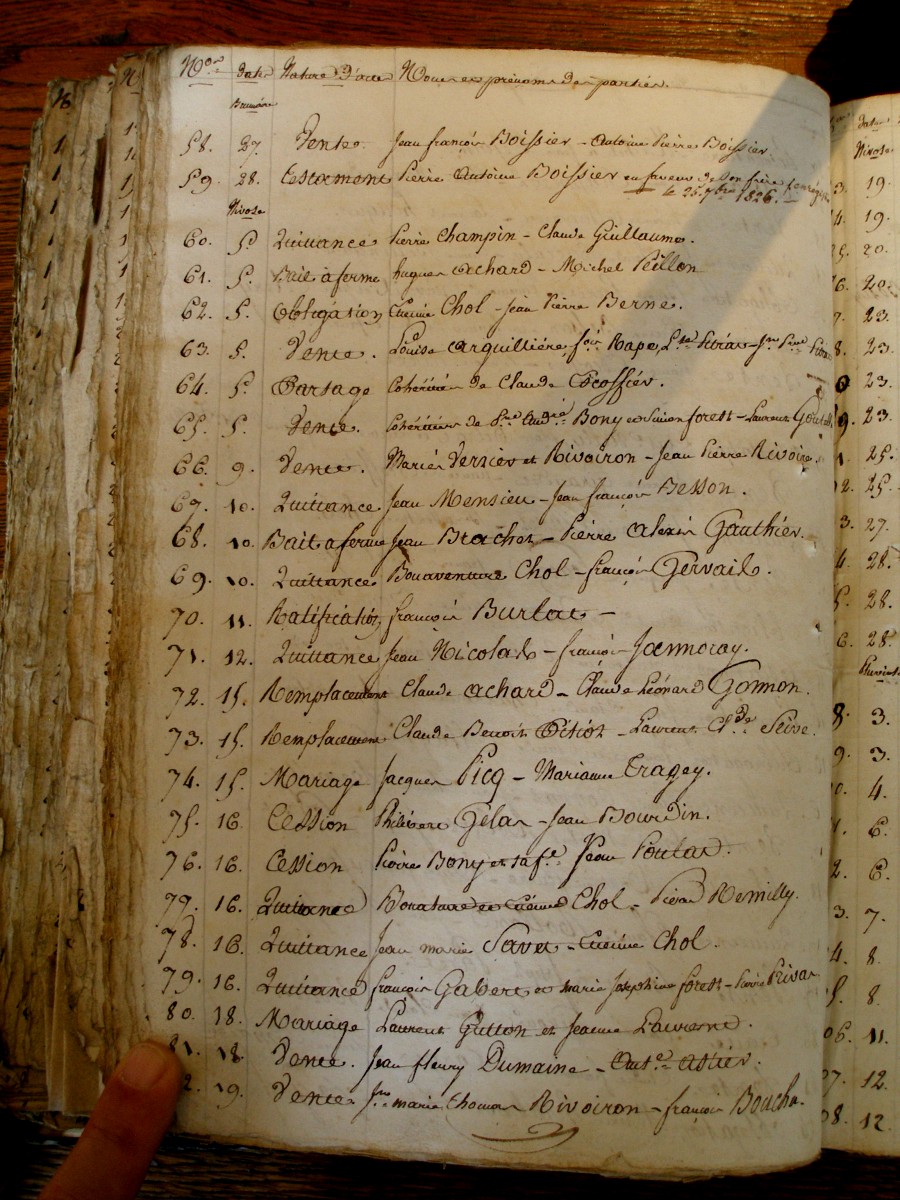 Nos. Date Nature d'acte Noms et prénoms des parties.
Brumaire
58. 27. Vente. Jean françois Boissier - Antoine Pierre Boissier.
59. 28. Testament Pierre Antoine Boissier en faveur de son frère
le 25. 7bre 1826. -
Nivose
60. 5. Quittance Pierre Champin - Claude Guillaume.
61. 5. Bail a ferme hugues Achard - Michel Peillon
62. 5. Obligation Etienne Chol - Jean Pierre Berne.
63. 5. Vente. Louise Arquilliére
64. 5. Partage Cohéritiers de Claude Ecossier.
65. 5. Vente. Cohéritiers de Bony et Simon forest - Laurent
66. 9. Vente. Mariés Verrier et Rivoiron - Jean Pierre Rivoire.
67. 10. Quittance Jean Mensieu - Jean françois Besson.
68. 10. Bail a ferme Jean Blachet - Pierre Alexis Gauthier.
69. 10. Quittance Bonaventure Chol - françois Gervais.
70. 11. Ratification françois Burlat -
71. 12. Quittance Jean Nicolas - françois Joannoray.
72. 15. Remplacement Claude Achard - Claude Léonard Gonnon.
73. 15. Remplacement Claude Benoit Pitiot - Laurent Cl.de Seive.
74. 15. Mariage Jacques Picq - Marianne Tragey.
75. 16. Cession Philibert Gelas - Jean Bourdin.
76. 16. Cession Pierre Bony et sa fe. Jean Poulat.
77. 16. Quittance Chol - Pierre Remilly.
78. 16. Quittance Jean marie Savet - Etienne Chol.
79. 16. Quittance françois Gabert et marie Josephine forest - Pierre Privas
80. 18. Mariage Laurent Gutton et Jeanne
81. 18. Vente. Jean fleury Dumaine - Ant.e Astier.
2. 19. Vente Jne. marie Thomas Rivoiron - françois Boucha.
Date
Nivose
3. 19
4. 19
5. 20
6. 20.
7. 23.
8. 23
23
9. 23.
1. 25.
2. 25.
3. 27.
4. 28.
5. 28.
6. 28
Pluviose
8. 3.
9. 3
0. 4.
1. 6.
2. 6.
3. 7.
4. 8.
5. 8.
06. 11.
07. 12.
08. 12